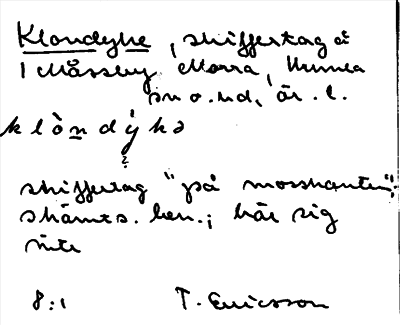 Klondyke, skiffertag å
1 Måssby, Morra, Hunna
sn o. hd, är. l.
k l ò n d ý k ə
?
skiffertag "på mosskanten";
skämts. ben.; bär sig
inte
8:1 T. Ericsson